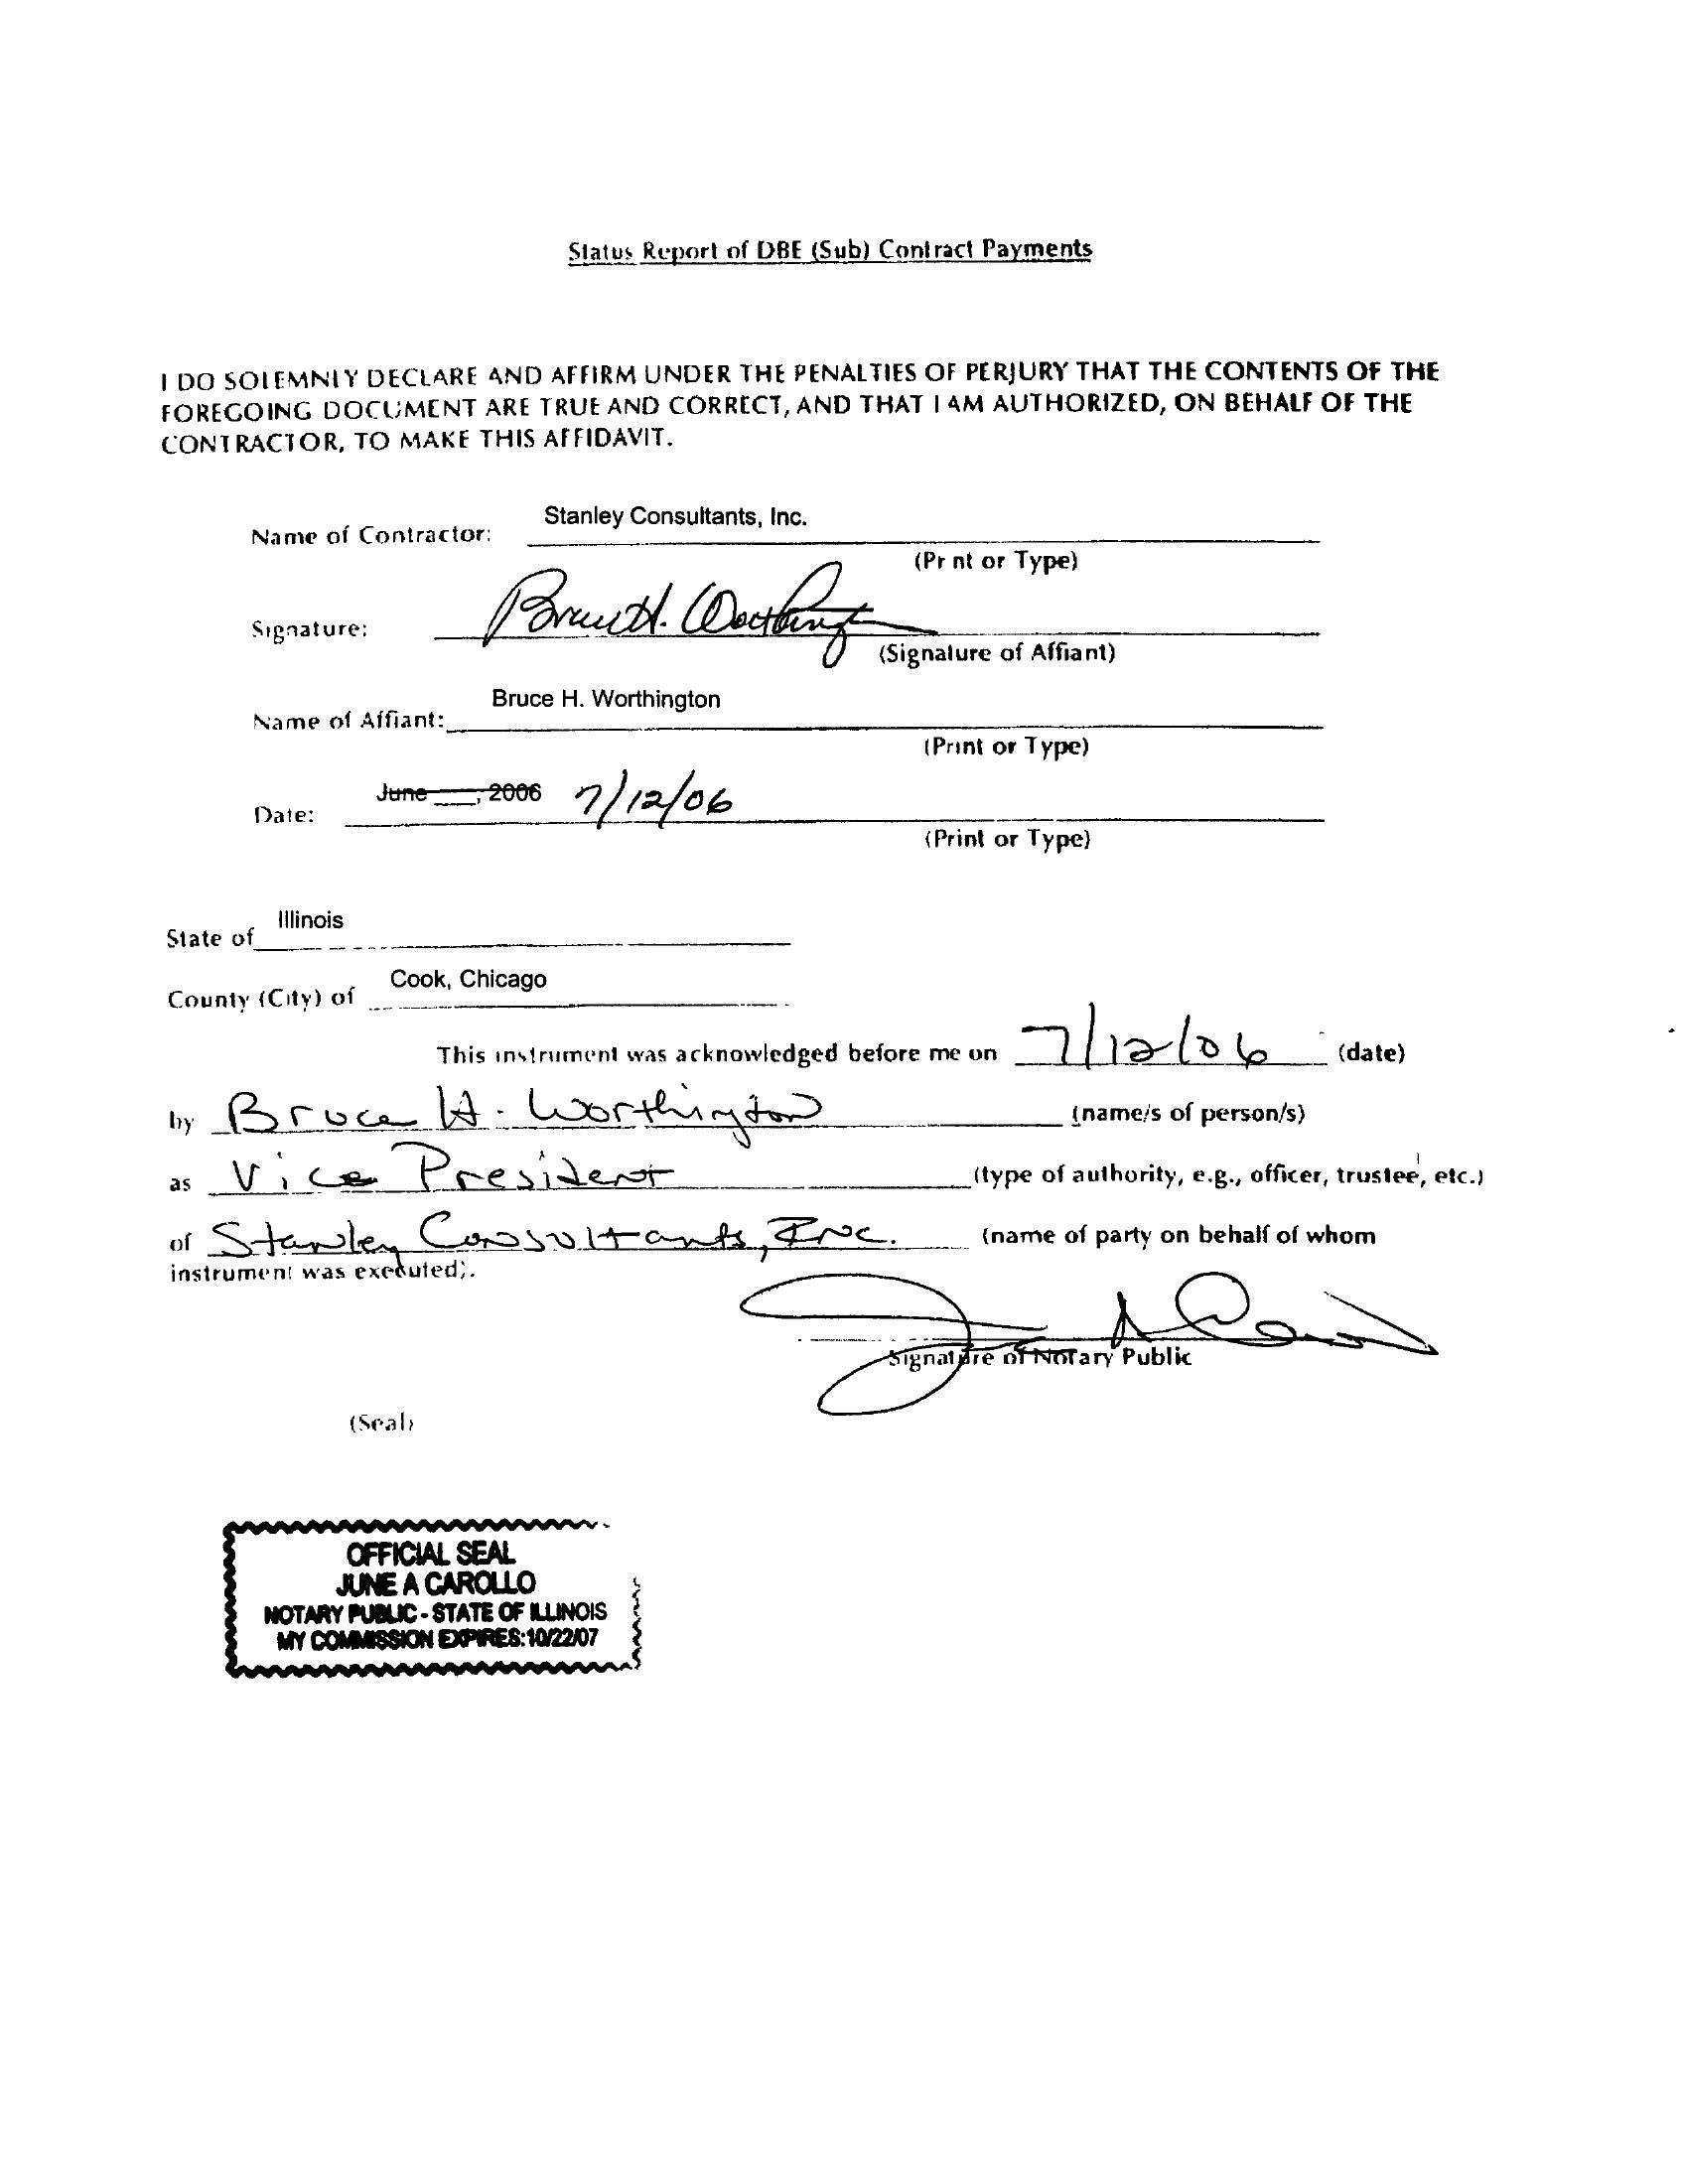 Status Report of DBE (Sub) Contract Payments
I DO SOLEMNLY DECLARE AND AFFIRM UNDER THE PENALTIES OF PERJURY THAT THE CONTENTS OF THE
FOREGOING DOCUMENT ARE TRUE AND CORRECT, AND THAT I AM AUTHORIZED, ON BEHALF OF THE
CONTRACTOR, TO MAKE THIS AFFIDAVIT.
Name of Contractor: Stanley Consultants, Inc.
(Print or Type)
Signature: Bruce H. Worthington
(Signature of Affiant)
Name of Affiant: Bruce H. Worthington
(Print or Type)
Date: June __, 2006 7/12/06
(Print or Type)
State of Illinois
County (City) of Cook, Chicago
This instrument was acknowledged before me on 7/12/06 (date)
by Bruce H. Worthington (name/s of person/s)
as Vice President (type of authority, e.g., officer, trustee, etc.)
of Stanley Consultants, Inc. (name of party on behalf of whom
instrument was executed).
Signature of Notary Public
(Seal)
OFFICIAL SEAL
JUNE A CAROLLO
NOTARY PUBLIC - STATE OF ILLINOIS
MY COMMISSION EXPIRES:10/22/07